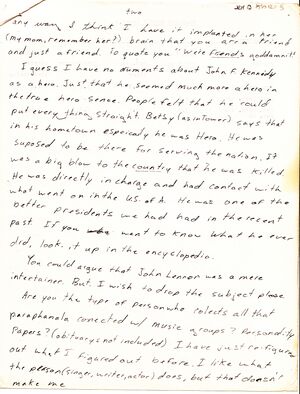 two
any way I think I have it implanted in her
(my mom, remember her?) brain that you are a friend
and just a friend. To quote you "We're friends goddamnit"
I guess I have no duments about John F Kennedy
as a hero. Just that he seemed much more a hero in
the true hero sense. People felt that he could
put every thing straight. Betsy (as in Tower) says that
in his hometown especialy he was Hero. He was
suposed to be there for serving the nation. It
was a big blow to the country that he was killed.
He was directly in charge and had contact with
what went on in the U.S. of A. He was one of the
better presidents we had had in the recent
past If you want to know what he ever
did, look it up in the encyclopedia.
You could argue that John Lennon was a mere
intertainer. But I wish to drop the subject please
Are you the type of person who colects all that
paraphanala conected w/ music groups? Personality
Papers? (obituarys not included) I have just re-figured
out what I figured out before. I like what
the person (singer, writer, actor) does, but that doesn't
make me